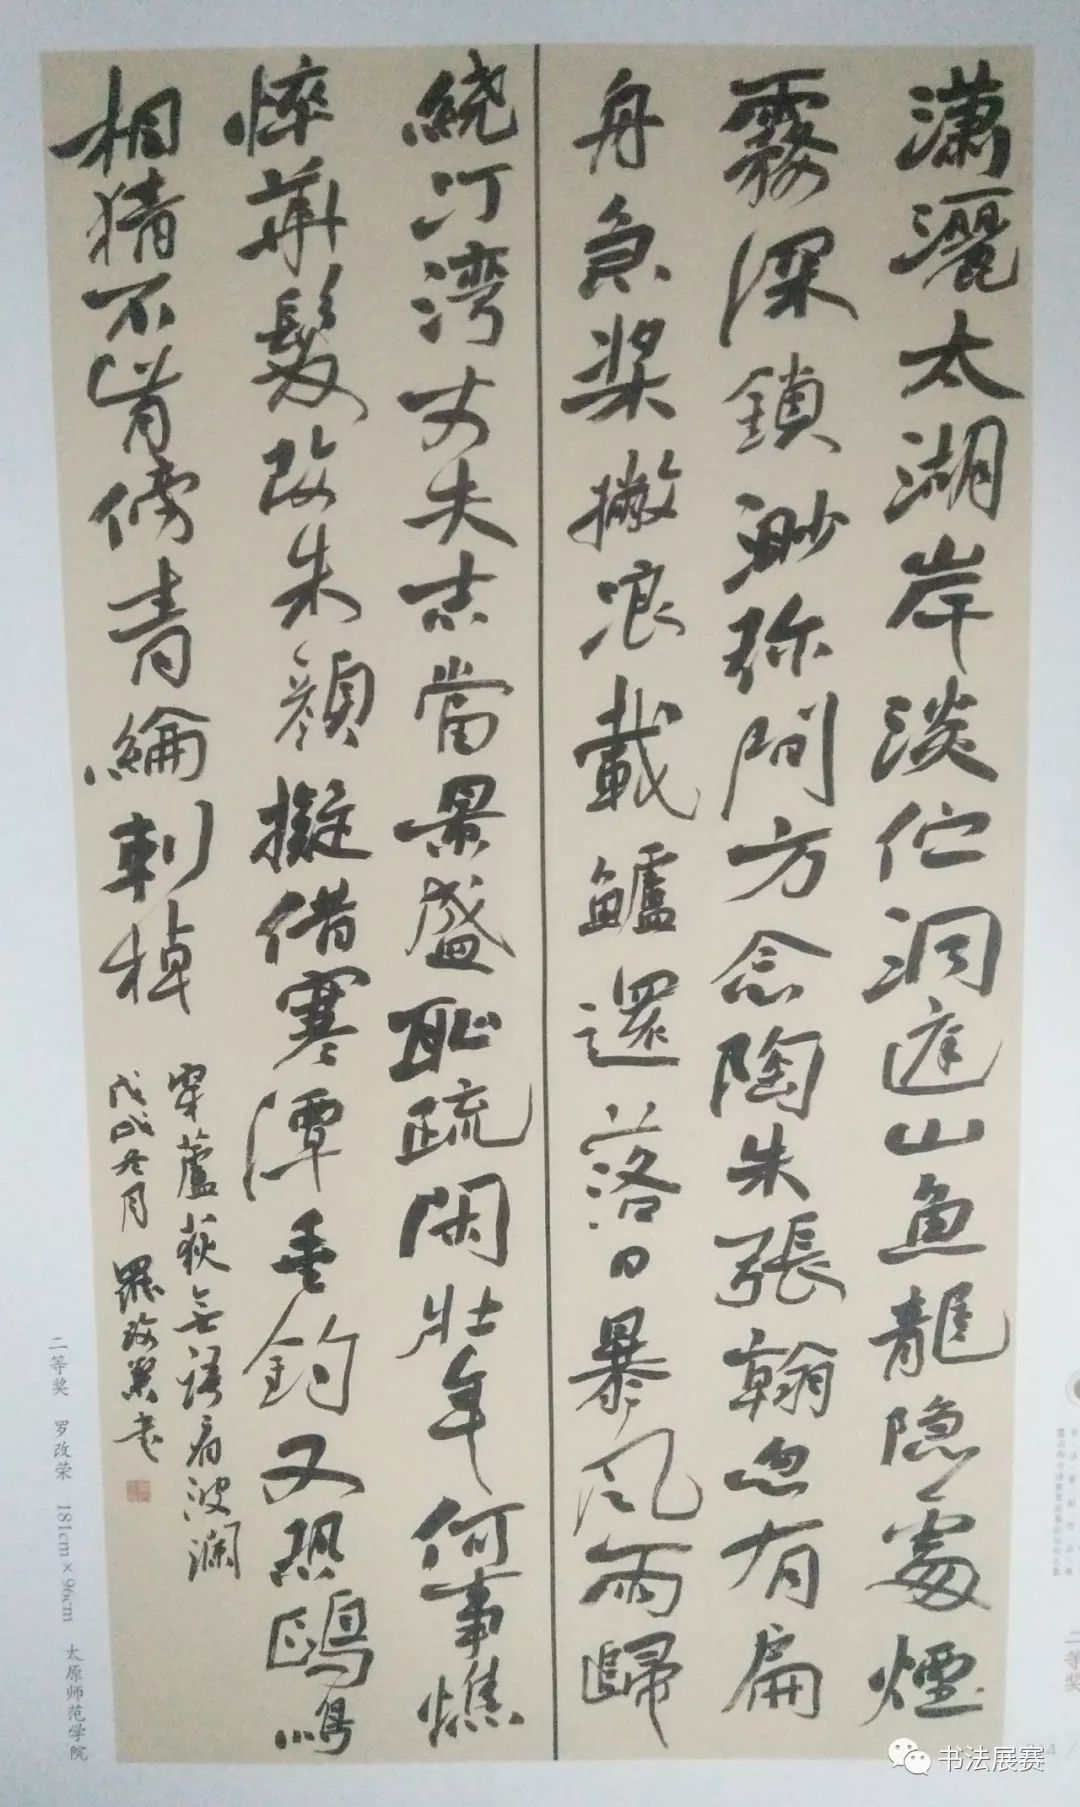 瀟灑太湖岸淡伫洞庭山魚龍隐處煙
霧深鎖渺弥間方念陶朱張翰忽有扁
舟急桨撇浪載鱸還落日暴风雨歸
繞汀湾丈夫志當景盛恥疏閑壮年何事憔
悴華髮改朱顔擬借寒潭垂釣又恐鷗鳥
相猜不肯傍青綸刺棹
穿蘆荻无語看波瀾
戊戌冬月 羅改荣书
二等奖 罗改荣 181cm×96cm 太原师范学院
二等奖
书法展赛